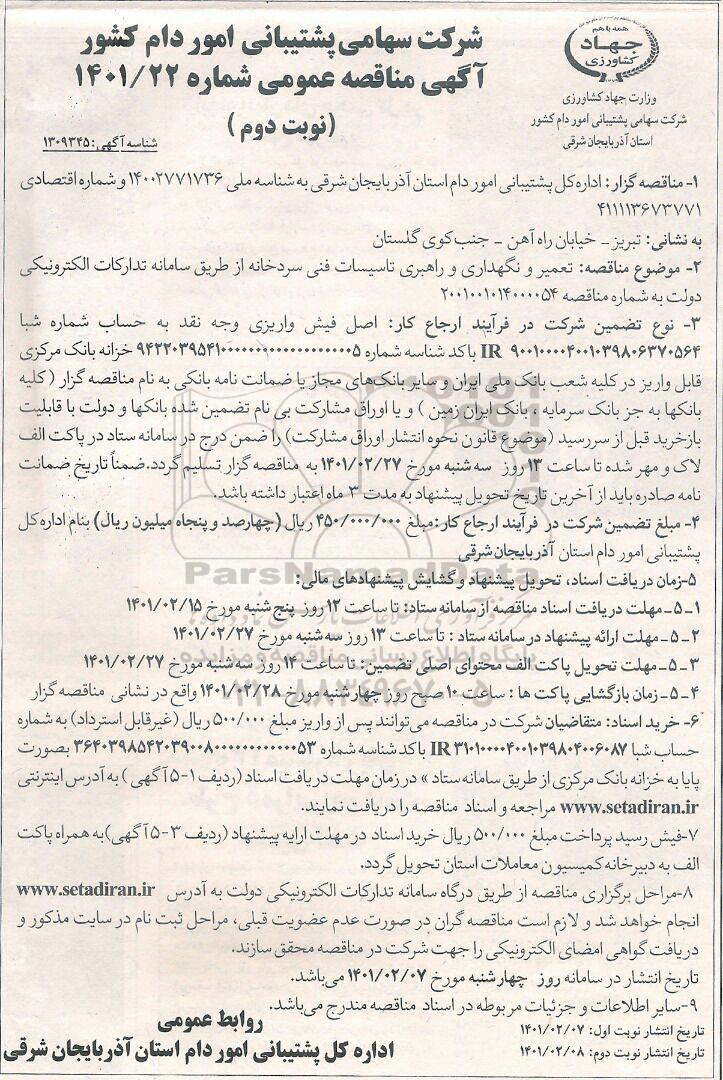 همه با هم
جهاد
کشاورزی
وزارت جهاد کشاورزی
شرکت سهامی پشتیبانی امور دام کشور
استان آذربایجان شرقی
شرکت سهامی پشتیبانی امور دام کشور
آگهی مناقصه عمومی شماره ۱۴۰۱/۲۲
(نوبت دوم)
شناسه آگهی: ۱۳۰۹۳۴۵
۱- مناقصه گزار: اداره کل پشتیبانی امور دام استان آذربایجان شرقی به شناسه ملی ۱۴۰۰۲۷۷۱۷۳۶ و شماره اقتصادی
۴۱۱۱۱۳۶۷۳۷۷۱
به نشانی: تبریز - خیابان راه آهن - جنب کوی گلستان
۲- موضوع مناقصه: تعمیر و نگهداری و راهبری تاسیسات فنی سردخانه از طریق سامانه تدارکات الکترونیکی
دولت به شماره مناقصه ۲۰۰۱۰۰۱۰۱۴۰۰۰۰۵۴
۳- نوع تضمین شرکت در فرآیند ارجاع کار: اصل فیش واریزی وجه نقد به حساب شماره شبا
IR ۹۰۰۱۰۰۰۰۴۰۰۱۰۳۹۸۰۶۳۷۰۵۶۴ با کد شناسه شماره خزانه بانک مرکزی
قابل واریز در کلیه شعب بانک ملی ایران و سایر بانک‌های مجاز یا ضمانت نامه بانکی به نام مناقصه گزار (کلیه
بانکها به جز بانک سرمایه ، بانک ایران زمین ) و یا اوراق مشارکت بی نام تضمین شده بانکها و دولت با قابلیت
بازخرید قبل از سررسید (موضوع قانون نحوه انتشار اوراق مشارکت) را ضمن درج در سامانه ستاد در پاکت الف
لاک و مهر شده تا ساعت ۱۳ روز سه شنبه مورخ ۱۴۰۱/۰۲/۲۷ به مناقصه گزار تسلیم گردد. ضمناً تاریخ ضمانت
نامه صادره باید از آخرین تاریخ تحویل پیشنهاد به مدت ۳ ماه اعتبار داشته باشد.
۴- مبلغ تضمین شرکت در فرآیند ارجاع کار: مبلغ ۴۵۰/۰۰۰/۰۰۰ ریال (چهارصد و پنجاه میلیون ریال) بنام اداره کل
پشتیبانی امور دام استان آذربایجان شرقی
۵-زمان دریافت اسناد، تحویل پیشنهاد و گشایش پیشنهادهای مالی:
۱-۵- مهلت دریافت اسناد مناقصه از سامانه ستاد: تا ساعت ۱۲ روز پنج شنبه مورخ ۱۴۰۱/۰۲/۱۵
۲-۵- مهلت ارائه پیشنهاد در سامانه ستاد : تا ساعت ۱۳ روز سه شنبه مورخ ۱۴۰۱/۰۲/۲۷
۳-۵- مهلت تحویل پاکت الف محتوای اصلی تضمین: تا ساعت ۱۴ روز سه شنبه مورخ ۱۴۰۱/۰۲/۲۷
۴-۵- زمان بازگشایی پاکت ها : ساعت ۱۰ صبح روز چهارشنبه مورخ ۱۴۰۱/۰۲/۲۸ واقع در نشانی مناقصه گزار
۶- خرید اسناد: متقاضیان شرکت در مناقصه می‌توانند پس از واریز مبلغ ۵۰۰/۰۰۰ ریال (غیرقابل استرداد) به شماره
حساب شبا IR ۳۱۰۱۰۰۰۰۴۰۰۱۰۳۹۸۰۴۰۰۶۰۸۷ با کد شناسه شماره بصورت
پایا به خزانه بانک مرکزی از طریق سامانه ستاد » در زمان مهلت دریافت اسناد (ردیف ۱-۵ آگهی ) به آدرس اینترنتی
www.setadiran.ir مراجعه و اسناد مناقصه را دریافت نمایند.
۷-فیش رسید پرداخت مبلغ ۵۰۰/۰۰۰ ریال خرید اسناد در مهلت ارایه پیشنهاد (ردیف ۳-۵ آگهی) به همراه پاکت
الف به دبیرخانه کمیسیون معاملات استان تحویل گردد.
۸-مراحل برگزاری مناقصه از طریق درگاه سامانه تدارکات الکترونیکی دولت به آدرس www.setadiran.ir
انجام خواهد شد و لازم است مناقصه گران در صورت عدم عضویت قبلی، مراحل ثبت نام در سایت مذکور و
دریافت گواهی امضای الکترونیکی را جهت شرکت در مناقصه محقق سازند.
تاریخ انتشار در سامانه روز چهارشنبه مورخ ۱۴۰۱/۰۲/۰۷ می‌باشد.
۹-سایر اطلاعات و جزئیات مربوطه در اسناد مناقصه مندرج می‌باشد.
تاریخ انتشار نوبت اول: ۱۴۰۱/۰۲/۰۷
تاریخ انتشار نوبت دوم: ۱۴۰۱/۰۲/۰۸
روابط عمومی
اداره کل پشتیبانی امور دام استان آذربایجان شرقی
ParsNamadData
پایگاه اطلاع رسانی مناقصه و مزایده